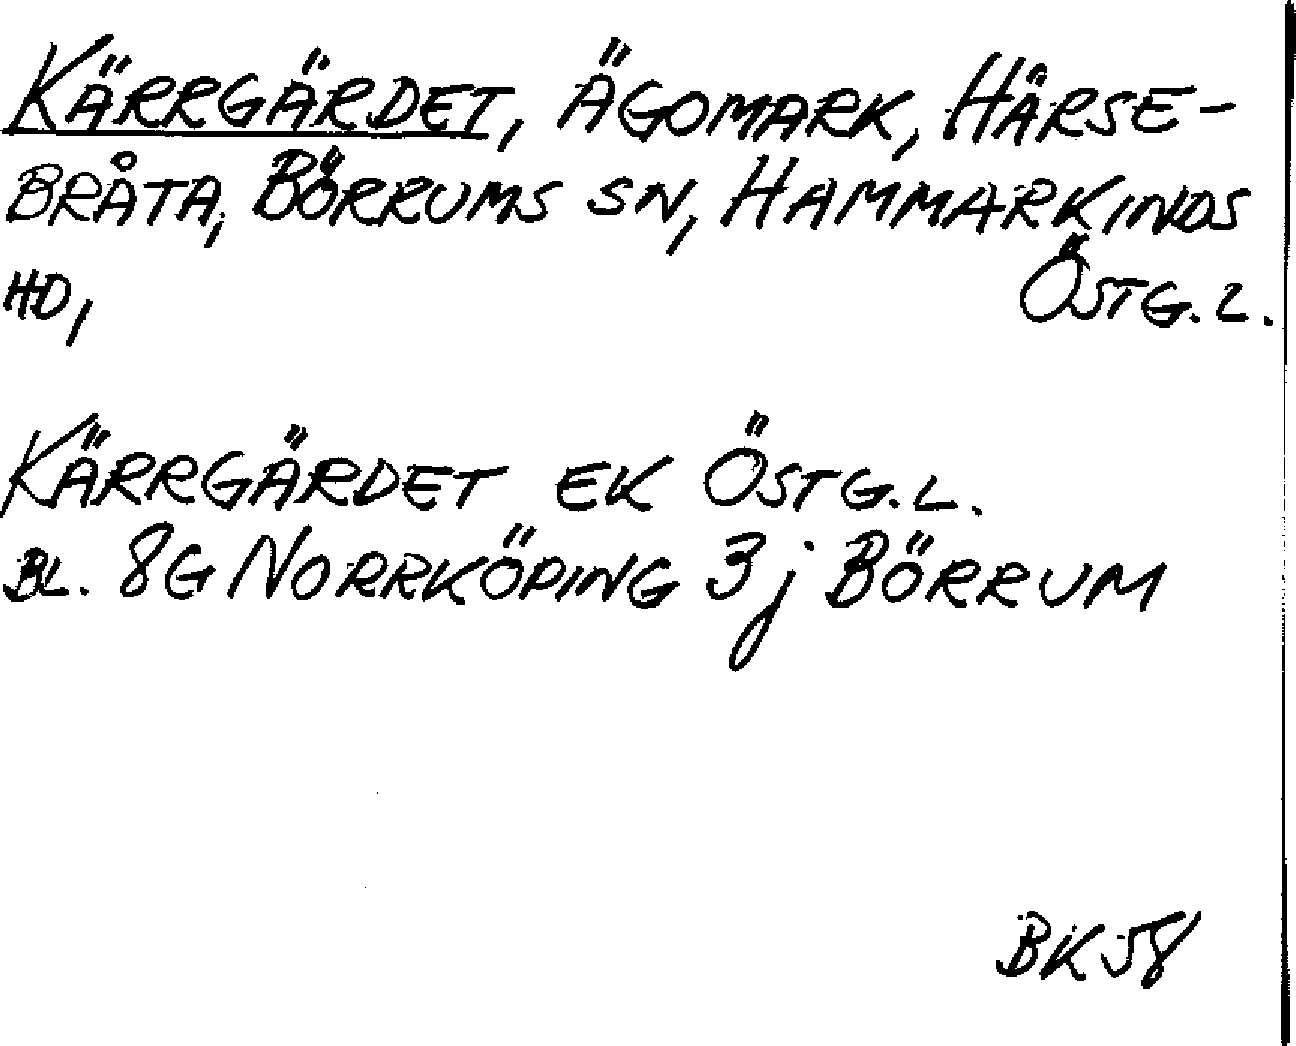 KÄRRGÄRDET, ÄGOMARK, HÅRSE-
BRÅTA, BÖRRUMS SN, HAMMARKINDS
HD, ÖSTG. L.
KÄRRGÄRDET EK ÖSTG. L.
BL. 8G NORRKÖPING 3j BÖRRUM
BK 58